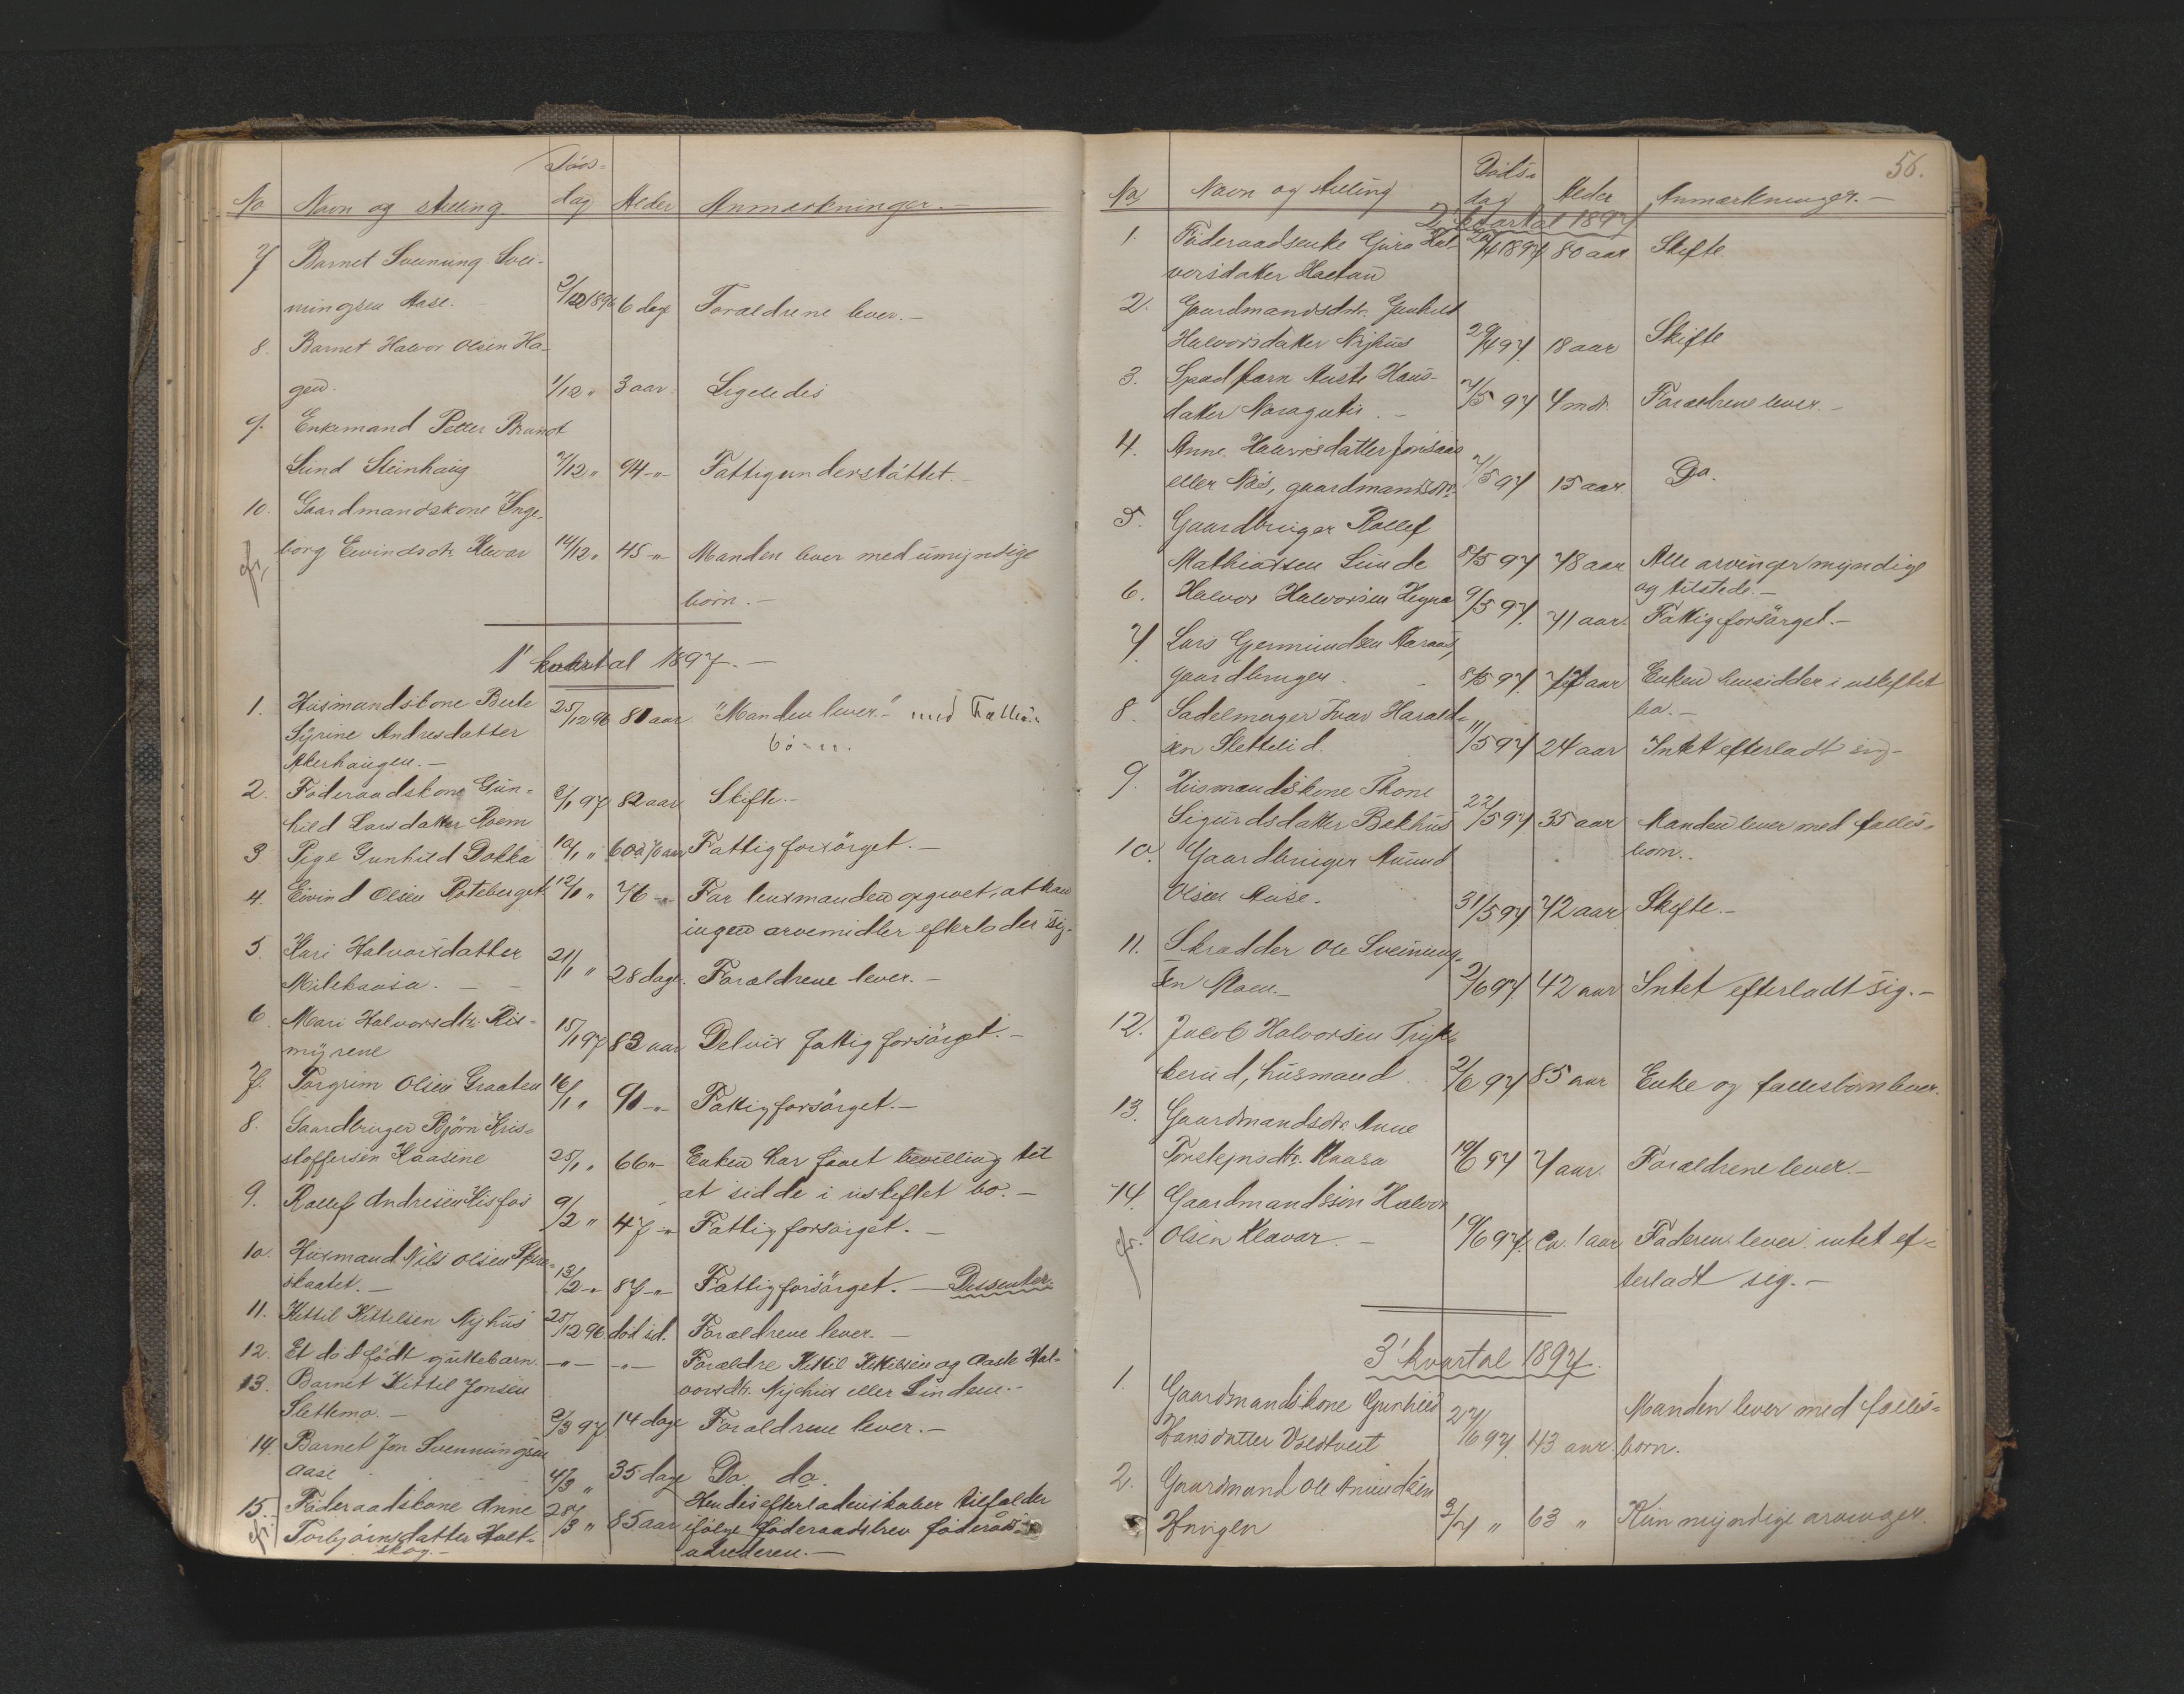 Døds-
No Navn og stilling dag Alder Anmærkninger. -
7 Barnet Sveinung Svei-
ningsen Aase. - 2/12 1896 6 dage Forældrene lever. -
8. Barnet Halvor Olsen Ha-
gen. 1/12 " 3 aar Ligeledes
9. Enkemand Petter Brandt
Lund Steinhaug 7/12 " 94 -"- Fattigunderstøttet. -
10. Gaardmandskone Inge-
borg Eivindsdtr. Klevar 14/12 " 45 -"- Manden lever med umyndige
børn. -
1' kvartal 1897. -
1. Husmandskone Berte 25/12 96 80 aar "Manden lever." med Fælles-
Syrine Andresdatter børn.
Akerhaugen. -
2. Føderaadskone Gun- 3/1 97 82 aar Skifte. -
hild Larsdatter Moem
3 Pige Gunhild Dokka 10/1 " 60 à 70 aar Fattigforsørget. -
4. Eivind Olsen Roteberget 12/1 " 76 -"- Far lensmanden opgivet, at han
ingen arvemidler efterlader sig.
5. Kari Halvorsdatter 21/1 " 28 dage. Forældrene lever. -
Milekaasa. - -
6 Mari Halvorsdtr. Ris- 15/1 97 83 aar Delvis fattigforsørget. -
myrene
7. Torgrim Olsen Graaten 16/1 " 90 -"- Fattigforsørget. -
8. Gaardbruger Bjørn Kris-
stoffersen Haasene 25/1 " 66 "- Enken har faaet bevilling til
at sidde i uskiftet bo. -
9. Rollef Andresen Kisfos 9/2 " 47 -"- Fattigforsørget. -
10. Husmand Nils Olsen
skaatet. - 13/2 -"- 87 -"- Fattigforsørget. - Dissenter.
11. Kittil Kittilsen Nyhus 25/12 96. død sd. Forældrene lever. -
12. Et dødfødt guttebarn. -"- -"- Forældre Kittil Kittilsen og Aaste Hal-
vorsdtr. Nyhus eller Lindem. -
13. Barnet Kittil Jonsen
Slettemo. - 2/3 97 14 dage Forældrene lever. -
14. Barnet Jon Svenningsen
Aase 4/3 " 35 dage Do do.
15. Føderaadskone Anne 28/3 " 85 aar Hendes efterladenskaber tilfalder
Torbjørnsdatter Holt- ifølge føderaadsbrev føderåds-
skog. - udrederen. -
56.
Døds-
No Navn og stilling dag Alder Anmærkninger. -
2' kvartal 1897
1. Føderaadsenke Guro Hal- 20/4 1897 80 aar Skifte.
vorsdatter Haatau
2. Gaardmandsdtr. Gunhild
Halvorsdatter Nyhus 29/4 97. 18 aar Skifte
3. Spædbarn Aaste Hans-
datter Noragutu. - 7/5 97 4 mdr. Forældrene lever. -
4. Anne Halvorsdatter Jonsaas
eller Næs, gaardmandsdtr. 7/5 97 15 aar. Do.
5. Gaardbruger Rollef
Mathiassen Lunde 8/5 97 78 aar Alle arvinger myndige
og tilstede. -
6. Halvor Halvorsen Hegna 9/5 97. 71 aar. Fattigforsørget. -
7. Lars Gjermundsen Aaraas,
gaardbruger. 8/5 97. 77 aar Enken hensidder i uskiftet
bo. -
8. Sadelmager Ivar Harald-
sen Slettelid. 11/5 97 24 aar Intet efterladt sig -
9. Husmandskone Thone
Sigurdsdatter Bakhus 22/5 97 35 aar Manden lever med fælles-
børn.
10 Gaardbruger Amund
Olsen Aase. 31/5 97 72 aar Skifte. -
11. Skrædder Ole Sveinung-
sen Moen. - 2/6 97 42 aar Intet efterladt sig. -
12. Jacob Halvorsen Tryte-
berud, husmand 2/6 97 85 aar Enke og fællesbørn lever.
13. Gaardmandsdtr. Anne
Torsteinsdtr. Kaasa 19/6 97 7 aar. Forældrene lever. -
14. Gaardmandssøn Halvor
Olsen Klevar. - 19/6 97. Ca. 1 aar Faderen lever. intet ef-
terladt sig. -
3' kvartal 1897.
1. Gaardmandskone Gunhild Manden lever med fælles-
Hansdatter Valstveit 27/6 97. 43 aar. børn.
2. Gaardmand Ole Amundsen
Haugen 3/7 " 63 " Kun myndige arvinger.